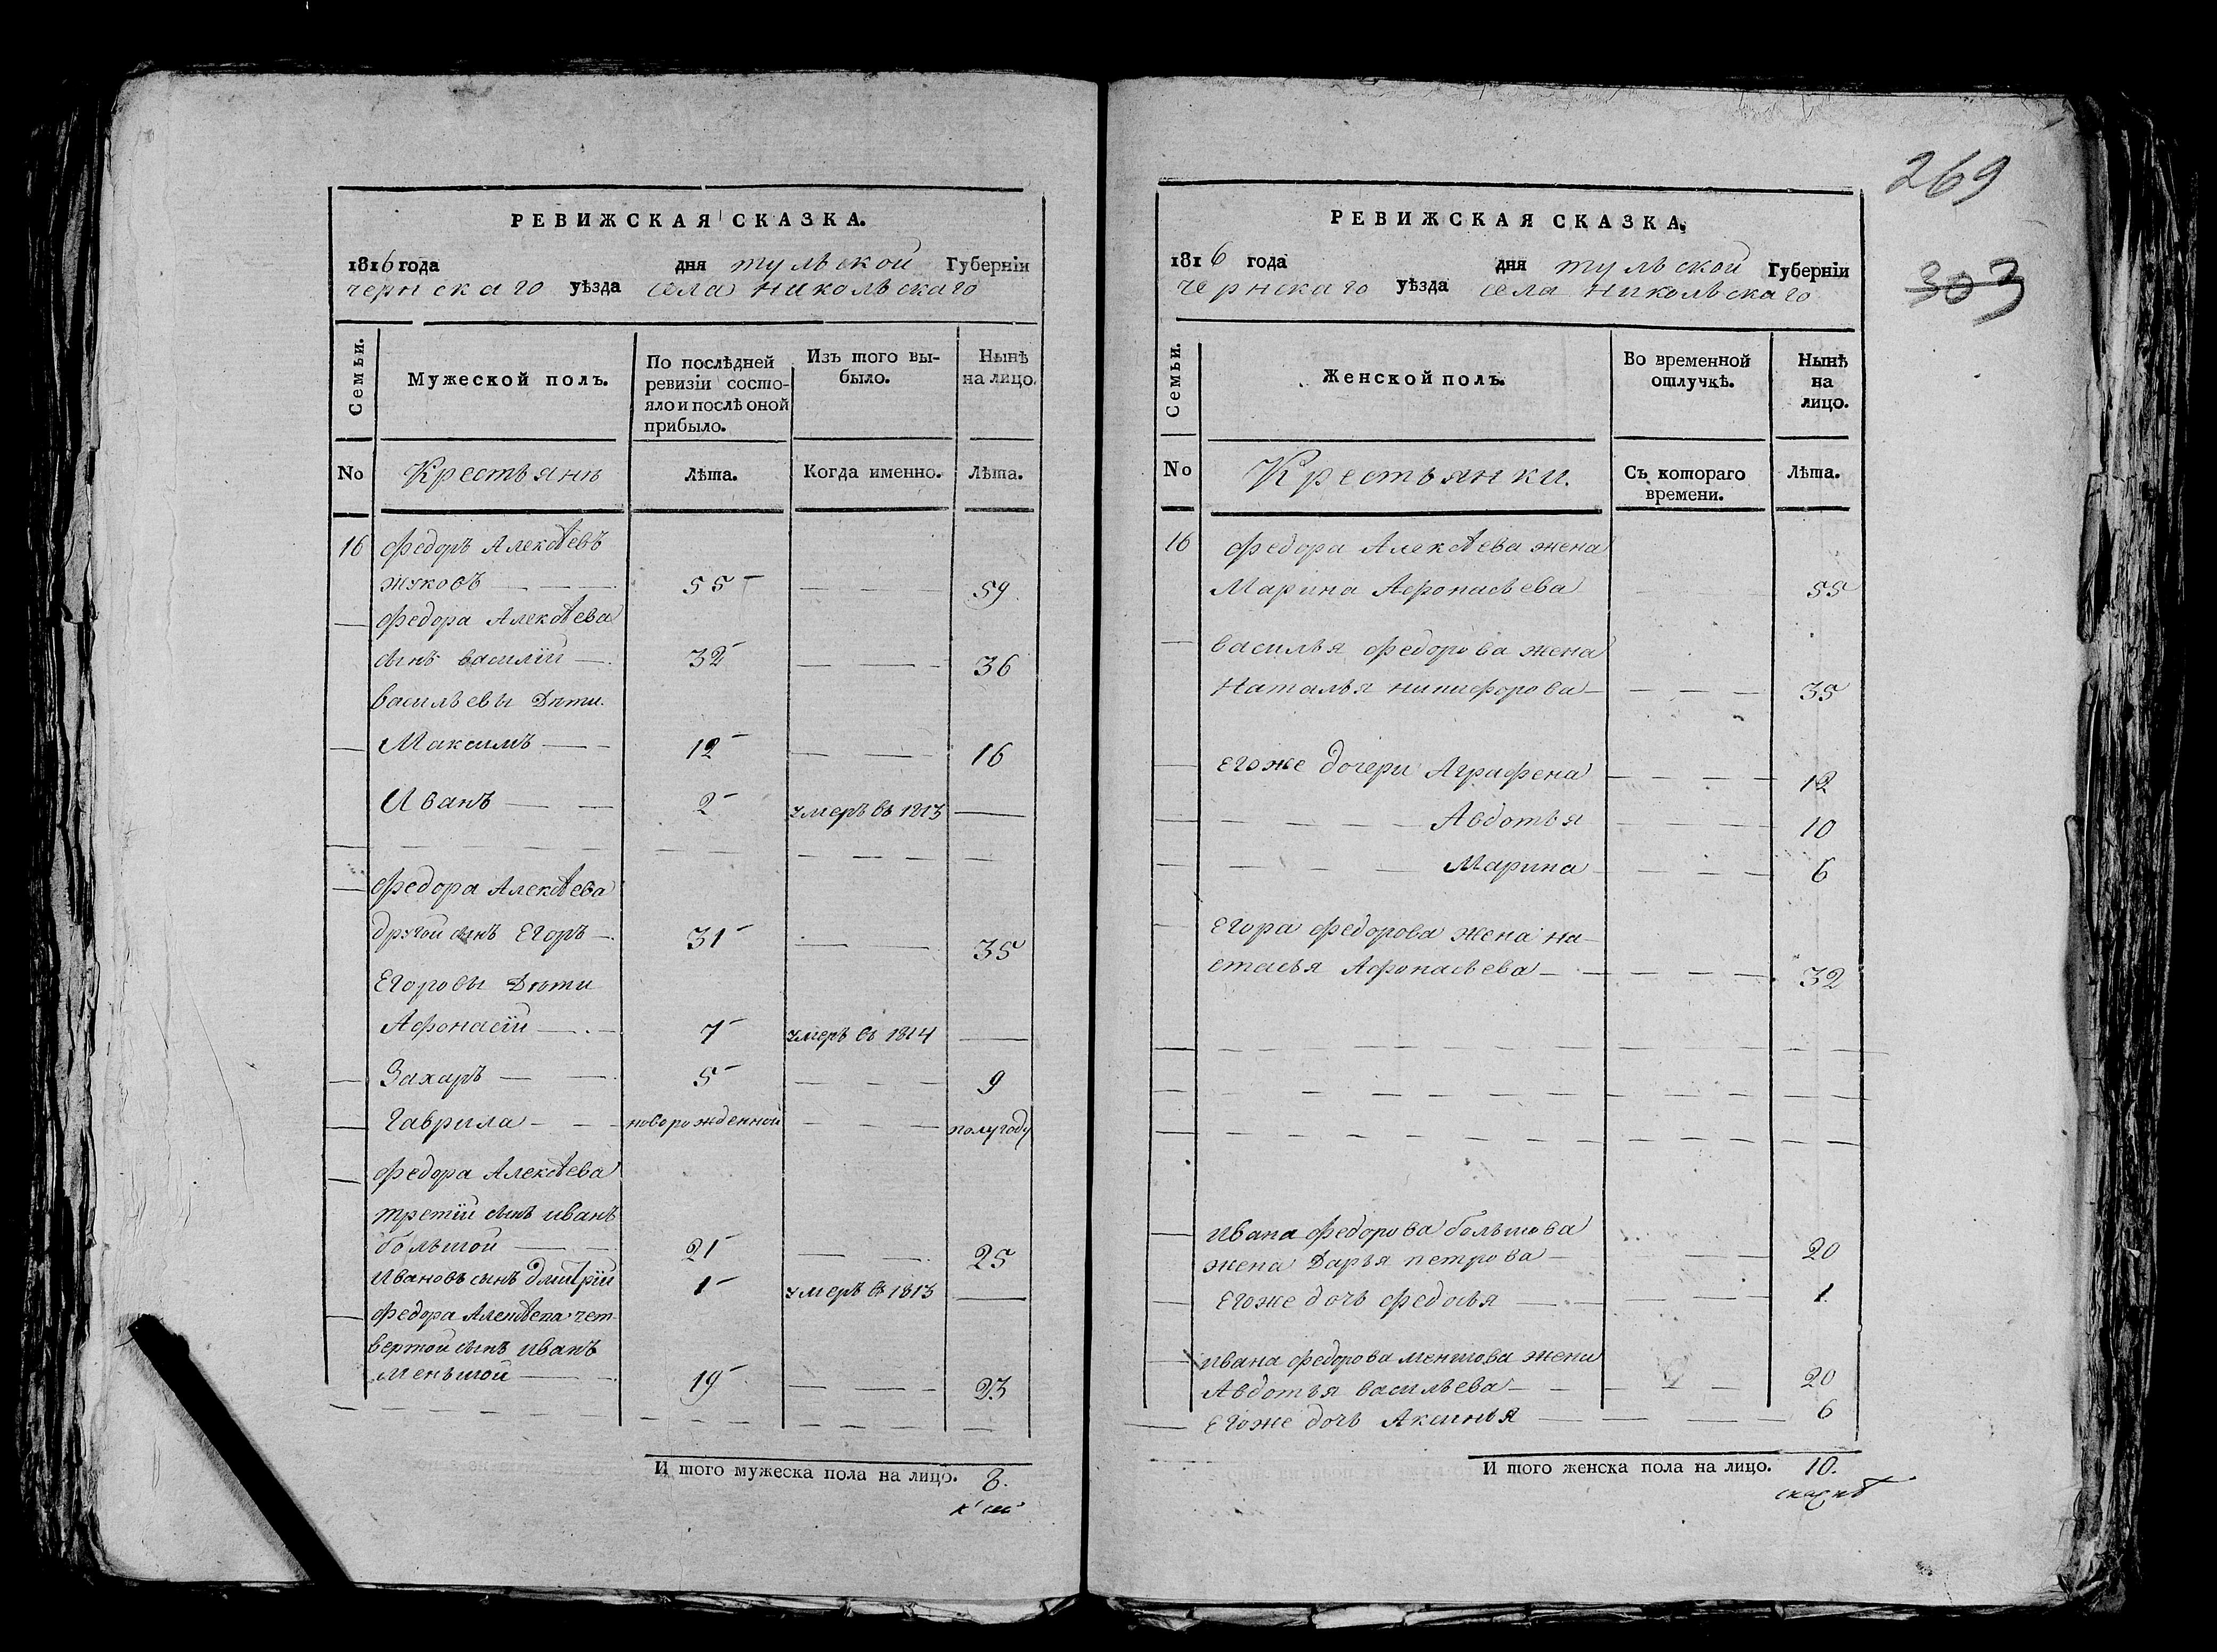 РЕВИЖСКАЯ СКАЗКА.
1816 года дня тульской Губерніи
чернскаго уѣзда села никольскаго
Семьи.
Мужеской полъ.
По послѣдней
ревизіи состо-
яло и послѣ оной
прибыло.
Изъ того вы-
было.
Нынѣ
на лицо.
No Крестьянѣ Лѣта. Когда именно. Лѣта.
16 Федоръ Алексѣевъ
жуковъ — — 55 — — — 59.
— Федора Алексѣева
сынъ василій — 32 — — — 36
васильевы Дѣти.
— Максимъ — — 12 — — 16
Иванъ — — 2 умеръ въ 1813 —
— Федора Алексѣева
другой сынъ Егоръ — 31 — — 35
Егоровы Дѣти
Афонасій — — 7 умеръ въ 1814 —
— Захаръ — — 5 — — — 9
— Гаврила — — — новорожденной — — — полугоду
— Федора Алексѣева
третій сынъ иванъ
большой — — 21 — — 25
Ивановъ сынъ Дмитрій 1 умеръ въ 1813 —
— Федора Алексѣева чет-
вертой сынъ иванъ
меньшой — — 19 — — — 23
И того мужеска пола на лицо. 8.
269
303
РЕВИЖСКАЯ СКАЗКА.
1816 года дня тульской Губерніи
чернскаго уѣзда села никольскаго
Семьи.
Женской полъ.
Во временной
отлучкѣ.
Нынѣ
на
лицо.
No Крестьянки. Съ котораго
времени. Лѣта.
16 Федора Алексѣева жена
Марина Афонасьева 55
— василья федорова жена
Наталья никифорова — — — — 35
— Егоже дочери Аграфена — — — — 12
— — — — — Авдотья — — — 10
— — — — — Марина — — — — 6
— Егора федорова жена на-
стасья Афонасьева — — — — — 32
— Ивана федорова большова
жена Дарья петрова — — — 20
— Егоже дочь федосья — — — — 1.
— ивана федорова меншова жена
Авдотья васильева — — — — — 20
— Егоже дочь Аксинья — — — — 6
И того женска пола на лицо. 10.